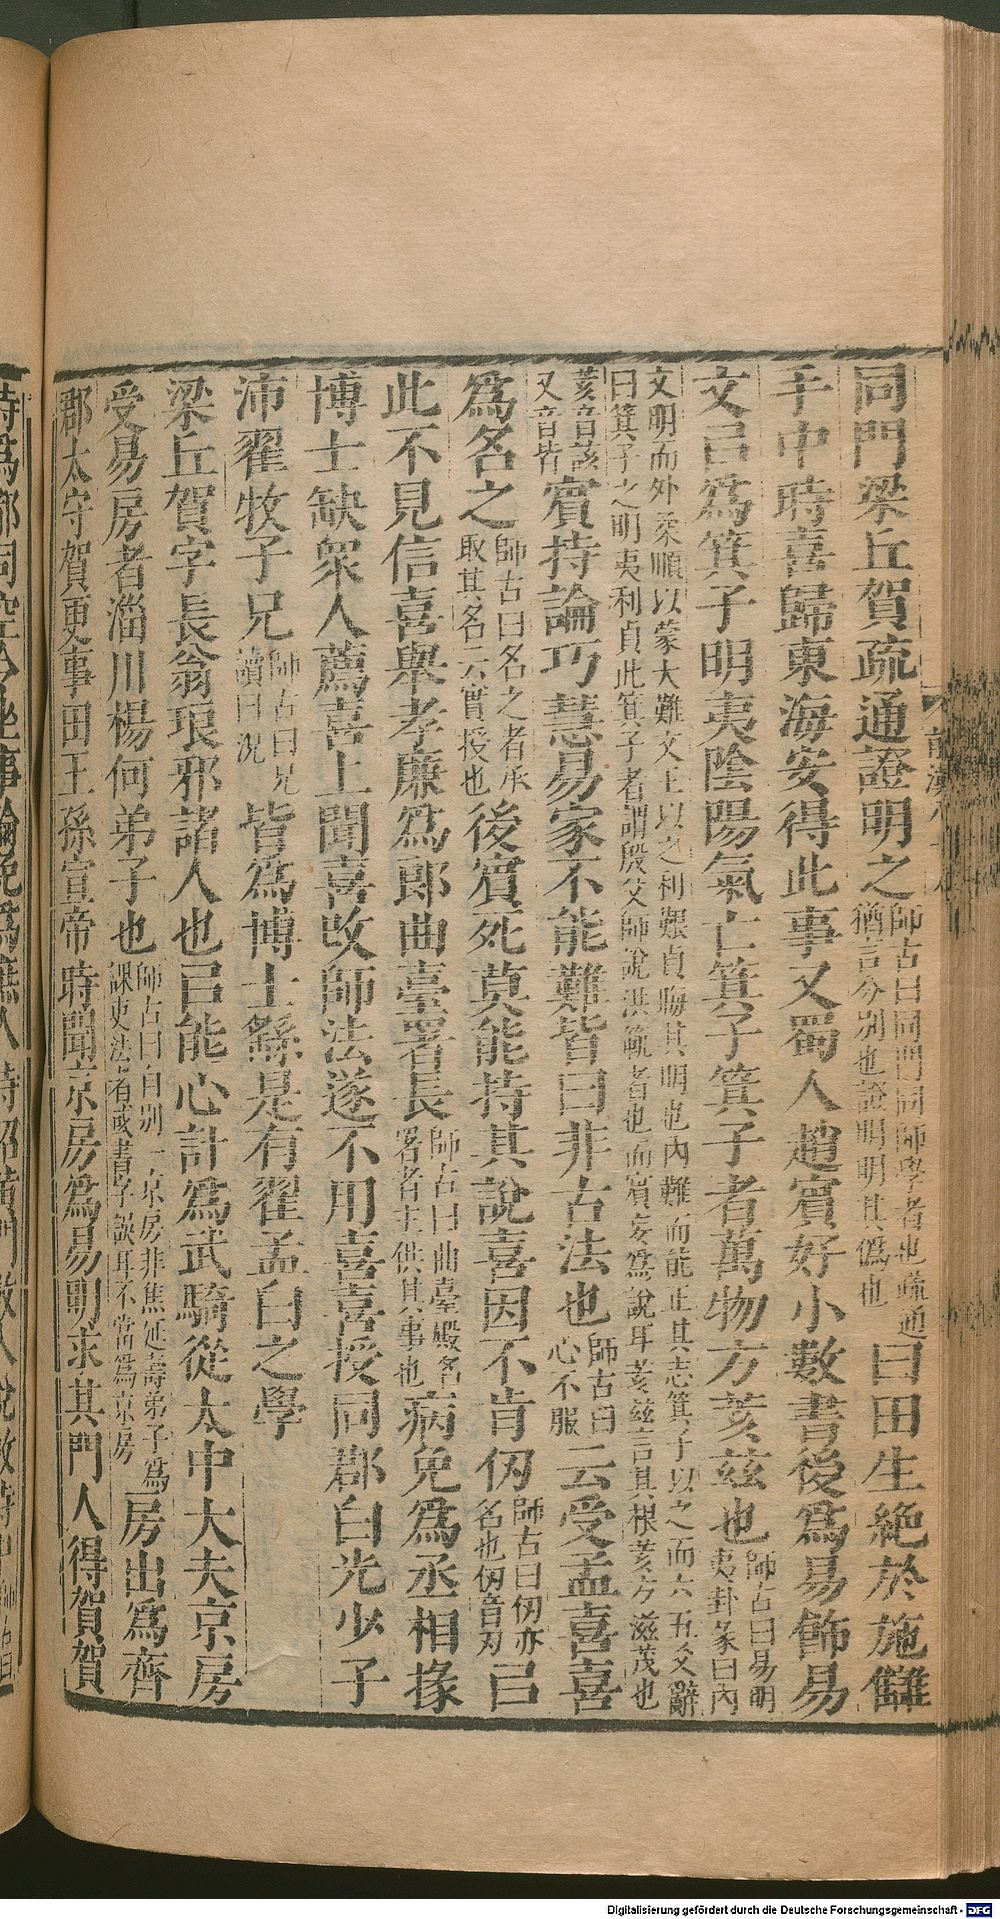 同門梁丘賀疏通證明之師古曰同門同師學者也疏通猶言分別也證明明其僞也曰田生絶於施讎
手中時喜歸東海安得此事又蜀人趙賓好小數書後爲易飾易
文㠯爲箕子明夷陰陽氣亡箕子箕子者萬物方荄兹也師古曰易明夷卦彖曰內
文明而外柔順以蒙大難文王以之利艱貞晦其明也內難而能正其志箕子以之而六五爻辭曰箕子之明夷利貞此箕子者謂殷父師說洪範者也而賓妄爲說耳荄兹言其根荄方滋茂也
荄音該又音皆賓持論巧慧易家不能難皆曰非古法也師古曰心不服云受孟喜喜
爲名之師古曰名之者承取其名云實授也後賓死莫能持其說喜因不肯仞師古曰仞亦名也仞音刃㠯
此不見信喜舉孝廉爲郎曲臺署長師古曰曲臺殿名署者主供其事也病免爲丞相掾
博士缺衆人薦喜上聞喜改師法遂不用喜喜授同郡白光少子
沛翟牧子兄師古曰兄讀曰況皆爲博士繇是有翟孟白之學
梁丘賀字長翁琅邪諸人也㠯能心計爲武騎從太中大夫京房
受易房者淄川楊何弟子也師古曰自別一京房非焦延壽弟子爲課吏法者或書字誤耳不當爲京房房出爲齊
郡太守賀更事田王孫宣帝時聞京房爲易明求其門人得賀賀
Digitalisierung gefördert durch die Deutsche Forschungsgemeinschaft - DFG